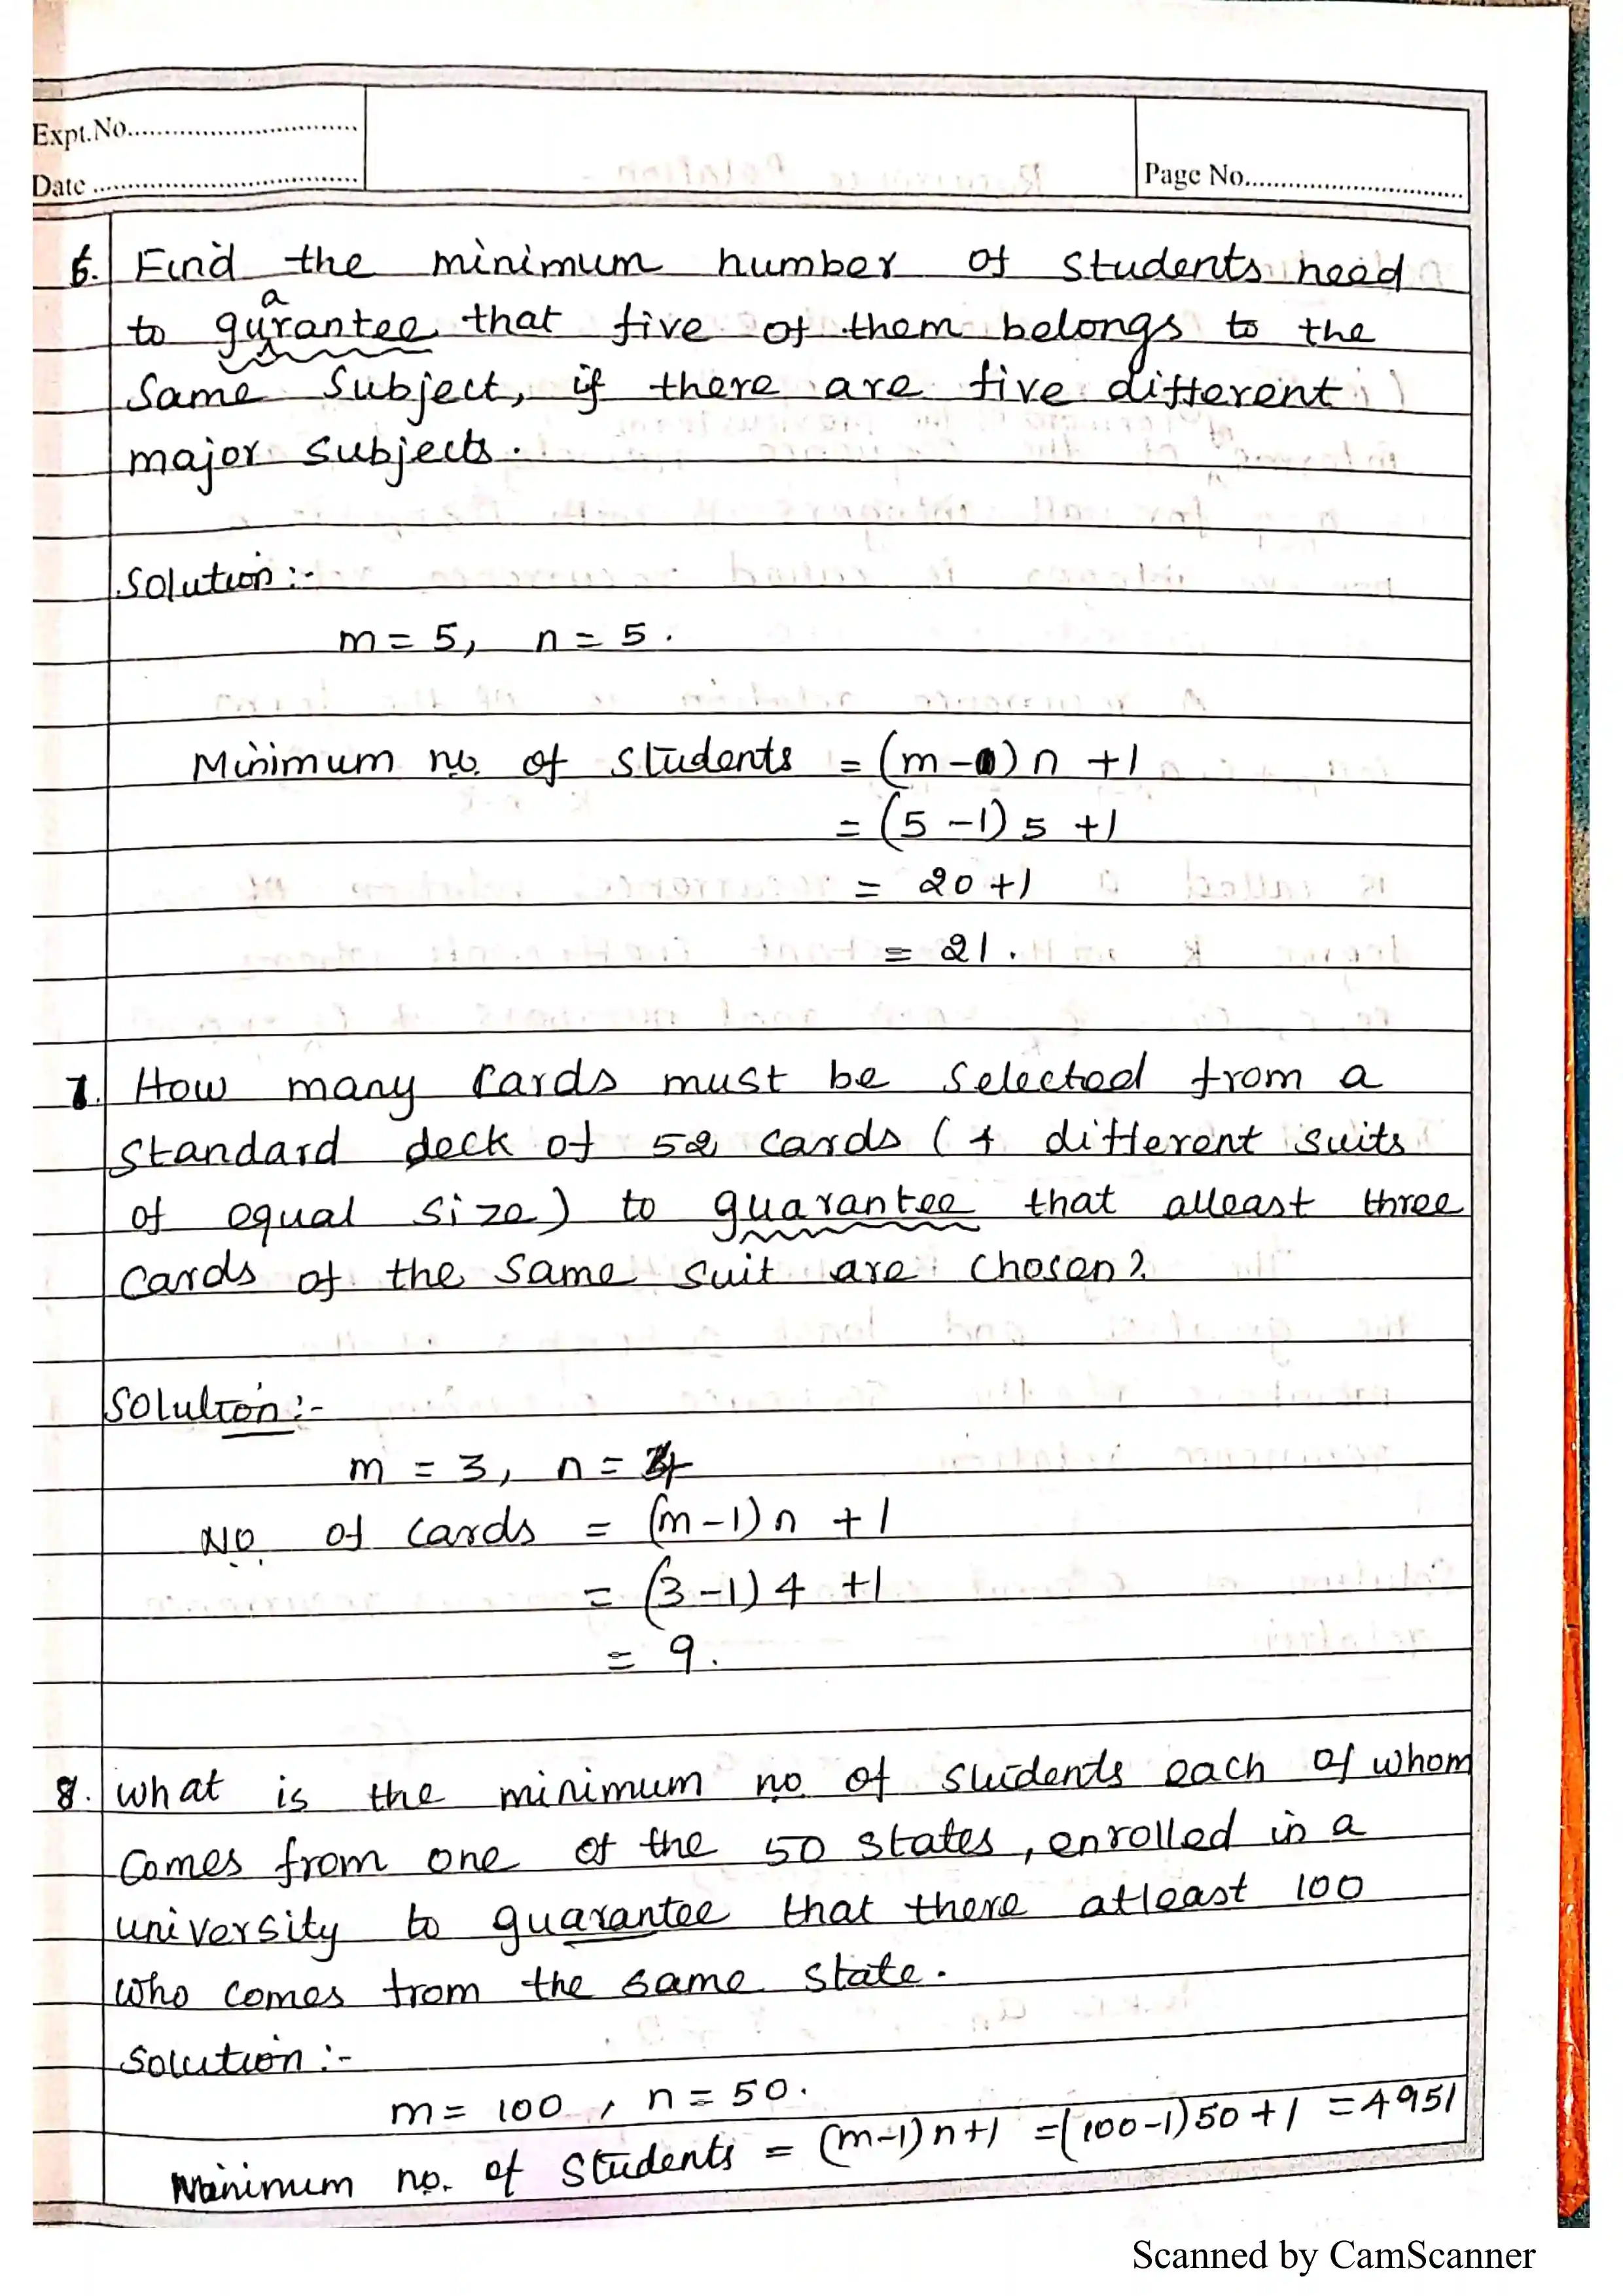 Expt.No..............................
Date ...................................
Page No..............................
6. Find the minimum number of students need
a
to gurantee that five of them belongs to the
Same Subject, if there are five different
major subjects.
Solution :-
m = 5, n = 5.
Minimum no. of students = (m-1) n +1
= (5 -1) 5 +1
= 20 +1
= 21.
7. How many cards must be selected from a
standard deck of 52 cards ( 4 different suits
of equal size ) to guarantee that atleast three
cards of the same suit are chosen?
Solution :-
m = 3, n = 4
No. of cards = (m-1) n + 1
= (3 -1) 4 +1
= 9.
8. What is the minimum no. of students each of whom
comes from one of the 50 states, enrolled in a
university to guarantee that there atleast 100
who comes from the same state.
Solution :-
m = 100 , n = 50.
Minimum no. of students = (m-1) n+1 = (100-1) 50 + 1 = 4951
Scanned by CamScanner